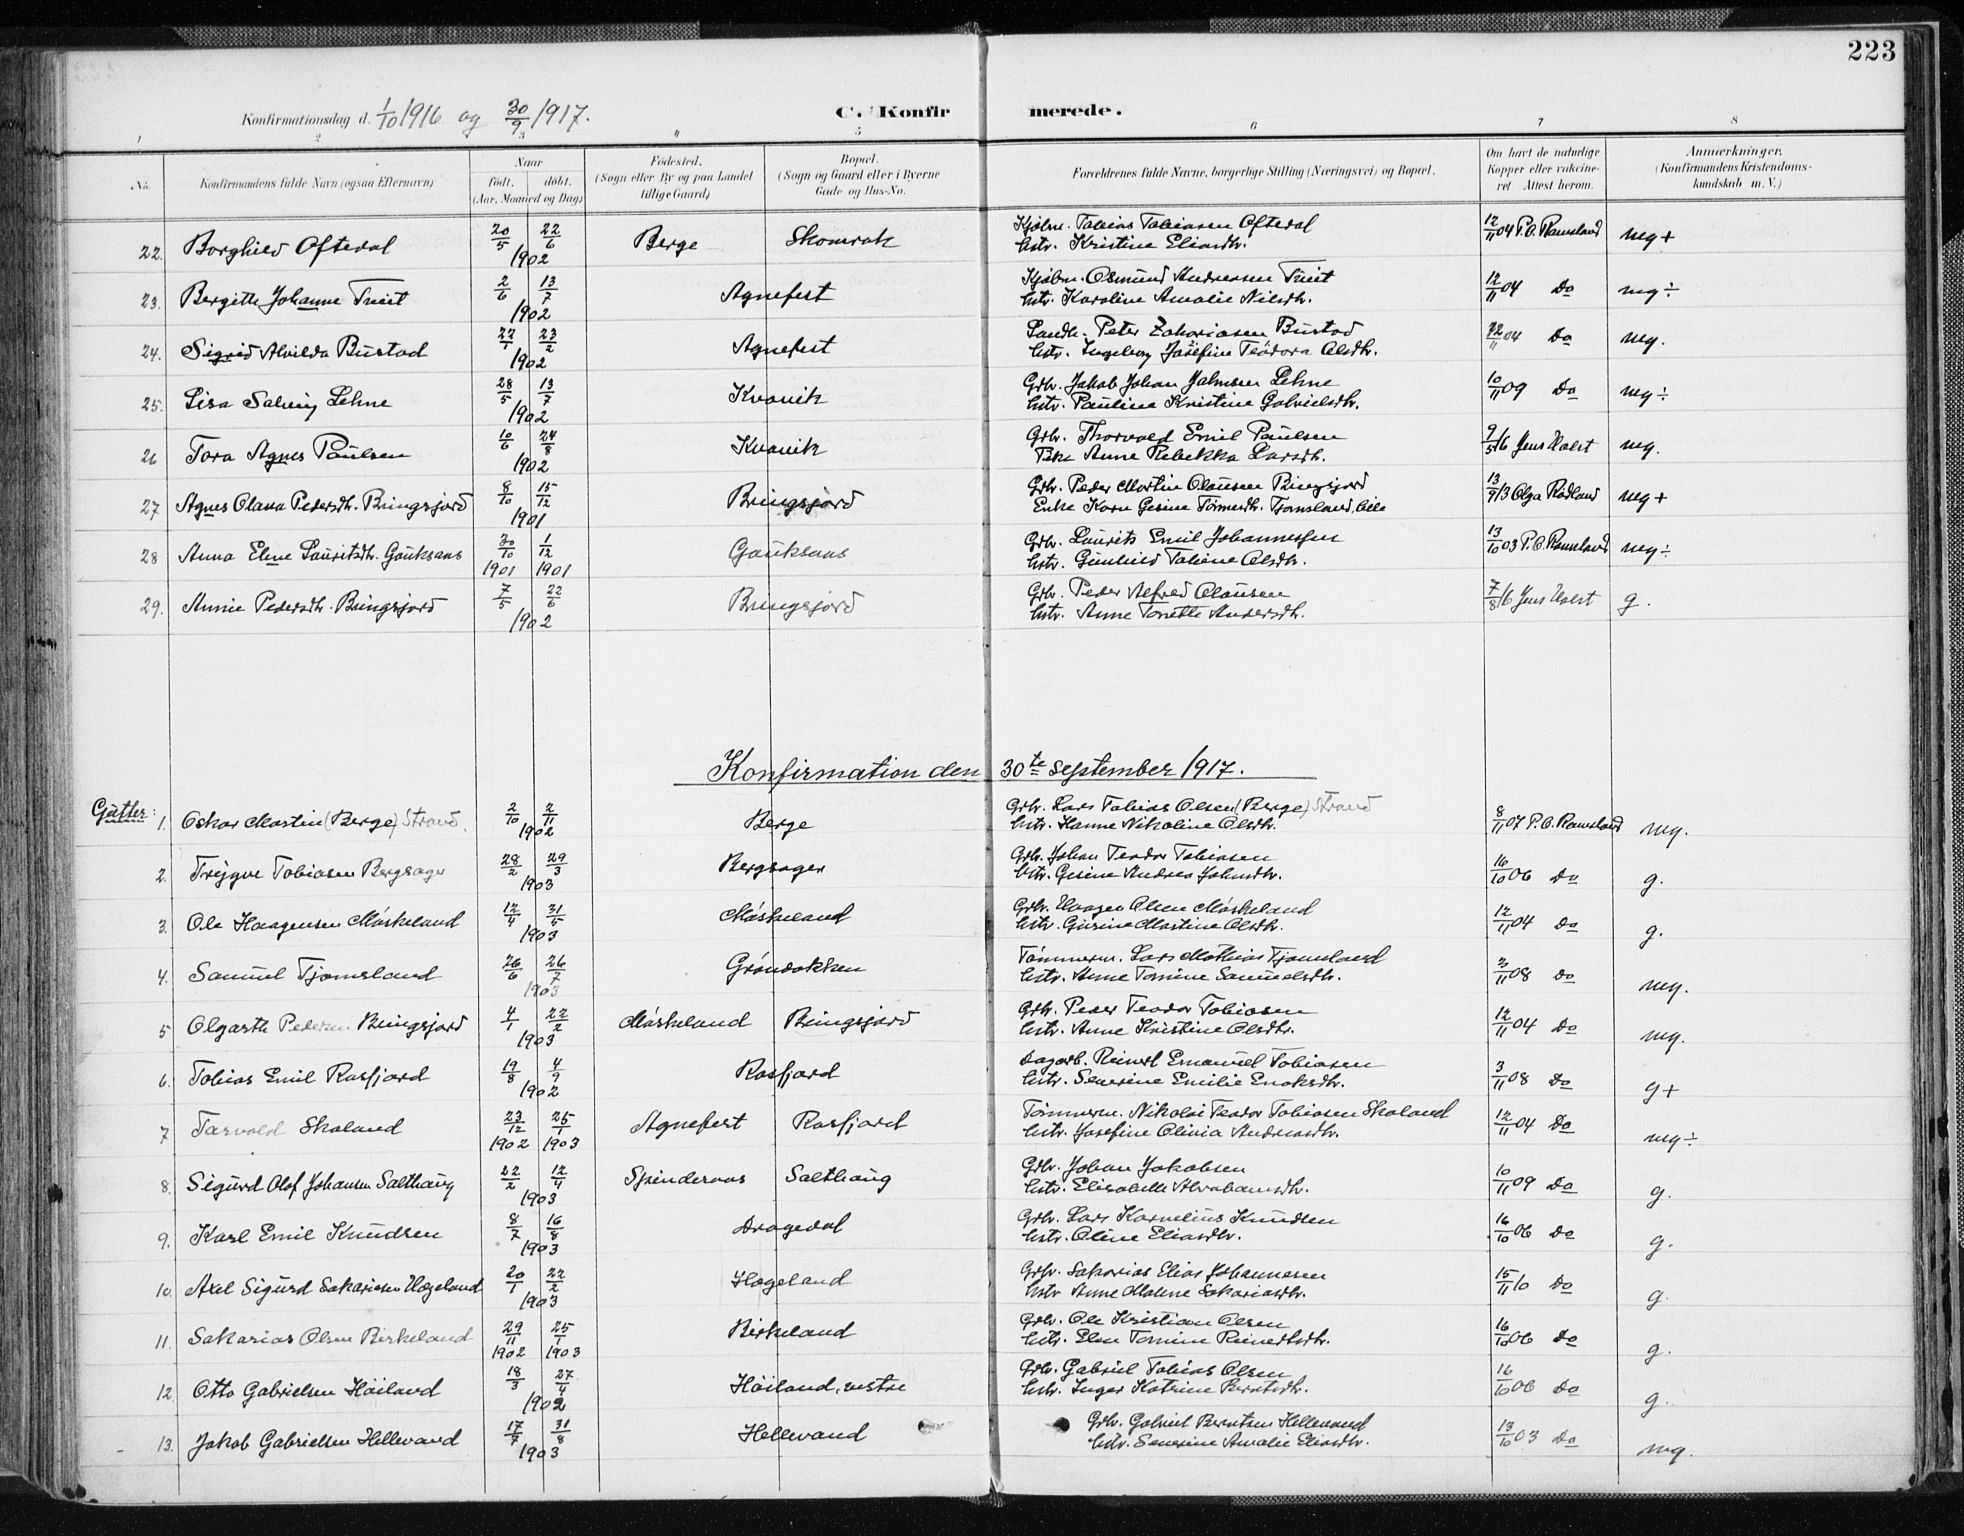 223
Konfirmationsdag d. 1/10 1916 og 30/9 1917.
C. Konfirmerede.
1 2 3 4 5 6 7 8
No. Konfirmandens fulde Navn (ogsaa Efternavn) Naar født. døbt. (Aar, Maaned og Dag) Fødested. (Sogn eller By og paa Landet tillige Gaard) Bopæl. (Sogn og Gaard eller i Byerne Gade og Hus-No. Forældrenes fulde Navne, borgerlige Stilling (Næringsvei) og Bopæl. Om havt de naturlige Kopper eller vakcineret. Attest herom. Anmærkninger. (Konfirmandens Kristendomskundskab m. V.)
22. Borghild Oftedal 20/5 22/6 1902 Berge Skomrak Kjøbm. Tobias Tobiasen Oftedal
hstr. Kristine Eliasdtr. 12/11 04 P.O. Ramsland mg+
23. Bergitte Johanne Tveit 2/6 13/7 1902 Agnefest Kjøbm. Osmund Andreasen Tveit
hstr. Karoline Amalie Nilsdtr. 12/11 04 Do mg÷
24. Sigrid Alvilda Bustad 22/1 23/2 1902 Agnefest Landh. Peter Zakariasen Bustad
hstr. Ingeborg Josefine Teodora Olsdtr. 12/11 04 Do mg.
25. Lisa Salvig Lehne 28/5 13/7 1902 Kvavik Grbr. Jakob Johan Jalmsen Lehne
hstr. Pauline Kristine Gabrielsdtr. 10/11 09 Do mg÷
26 Tora Agnes Paulsen 10/6 24/8 1902 Kvavik Grbr. Thorvald Emil Paulsen
Anne Rebekka Larsdtr. 9/5 16 Jens Valst mg.
27 Agnes Olava Pedersdtr. Bringsjord 8/10 15/12 1901 Bringsjord Grbr. Peder Martin Olausen Bringsjord
Enke Karn Gesine Tønnesdtr. Tjomsland, 13/9 13 Olga Rødland mg+
28 Anna Elene Lauritsdtr. Gauksaas 30/10 1901 1/12 1901 Gauksaas Grbr. Laurits Emil Johannessen
hstr. Gunhild Taline Olsdtr. 13/10 03 P.O. Ramsland mg÷
29. Annie Pedersdtr. Bringsjord 7/5 22/6 1902 Bringsjord Grbr. Peder Alfred Olausen
hstr. Anne Tonette Andersdtr. 7/8 16 Jens Valst g.
Konfirmation den 30te september 1917.
Gutter:
1. Oskar Martin (Berge) Strand. 2/10 2/11 1902 Berge Grbr. Lars Tobias Olsen (Berge) Strand
hstr. Hanne Nikoline Olsdtr. 8/11 07 P.O. Ramsland mg.
2. Trygve Tobiasen Bergsager 28/2 29/3 1903 Bergsager Grbr. Johan Teodor Tobiasen
hstr. Gesine Andrea Johnsdtr. 16/10 06 Do g.
3. Ole Haagensen Møskeland 12/4 31/5 1903 Møskeland Grbr. Haagen Olsen Møskeland
hstr. Gusine Martine Olsdtr. 12/11 04 Do g.
4. Samuel Tjomsland 26/6 26/7 1903 Grøndokken Tømmerm. Lars Mathias Tjomsland
hstr. Anne Tomine Samuelsdtr. 3/11 08 Do mg.
5 Olgarth Pedersen Bringsjord 4/1 22/2 1903 Møskeland Bringsjord Grbr. Peder Teodor Tobiasen
hstr. Anne Kristine Olsdtr. 12/11 04 Do mg.
6. Tobias Emil Rosfjord 19/8 4/9 1902 Rosfjord Dagarb. Reinert Emanuel Tobiasen
hstr. Severine Emilie Enoksdtr. 3/11 08 Do g+
7 Tarvald Skoland 23/12 1902 25/1 1903 Agnefest Rosfjord Tømmerm. Nikolai Teodor Tobiasen Skoland
hstr. Josefine Olivia Andreasdtr. 12/11 04 Do mg÷
8. Sigurd Olaf Johansen Salthaug 22/2 12/4 1903 Spinderaas Salthaug Grbr. Johan Jakobsen
hstr. Elisabeth Abrahamsdtr. 10/11 09 Do g.
9. Karl Emil Knudsen 8/7 16/8 1903 Dragedal Grbr. Lars Kornelius Knudsen
hstr. Oline Eliasdtr. 16/10 06 Do g.
10. Axel Sigurd Sakariasen Hægeland 20/1 22/2 1903 Hægeland Grbr. Sakarias Elias Johannesen
hstr Anne Malene Sakariasdtr. 15/11 10 Do g.
11. Sakarias Olsen Birkeland 29/11 1902 25/1 1903 Birkeland Grbr. Ole Kristian Olsen
hstr. Elen Tomine Reinertsdtr. 16/10 06 Do g.
12. Otto Gabrielsen Høiland 18/3 27/4 1902 Høiland, vestre Grbr. Gabriel Tobias Olsen
hstr. Inger Katrine Berntsdtr. 16/10 06 Do g.
13. Jakob Gabrielsen Hellevand 17/7 31/8 1903 Hellevand Grbr. Gabriel Berntsen Hellevand
hstr. Severine Amalie Eliasdtr. 13/10 03 Do mg.